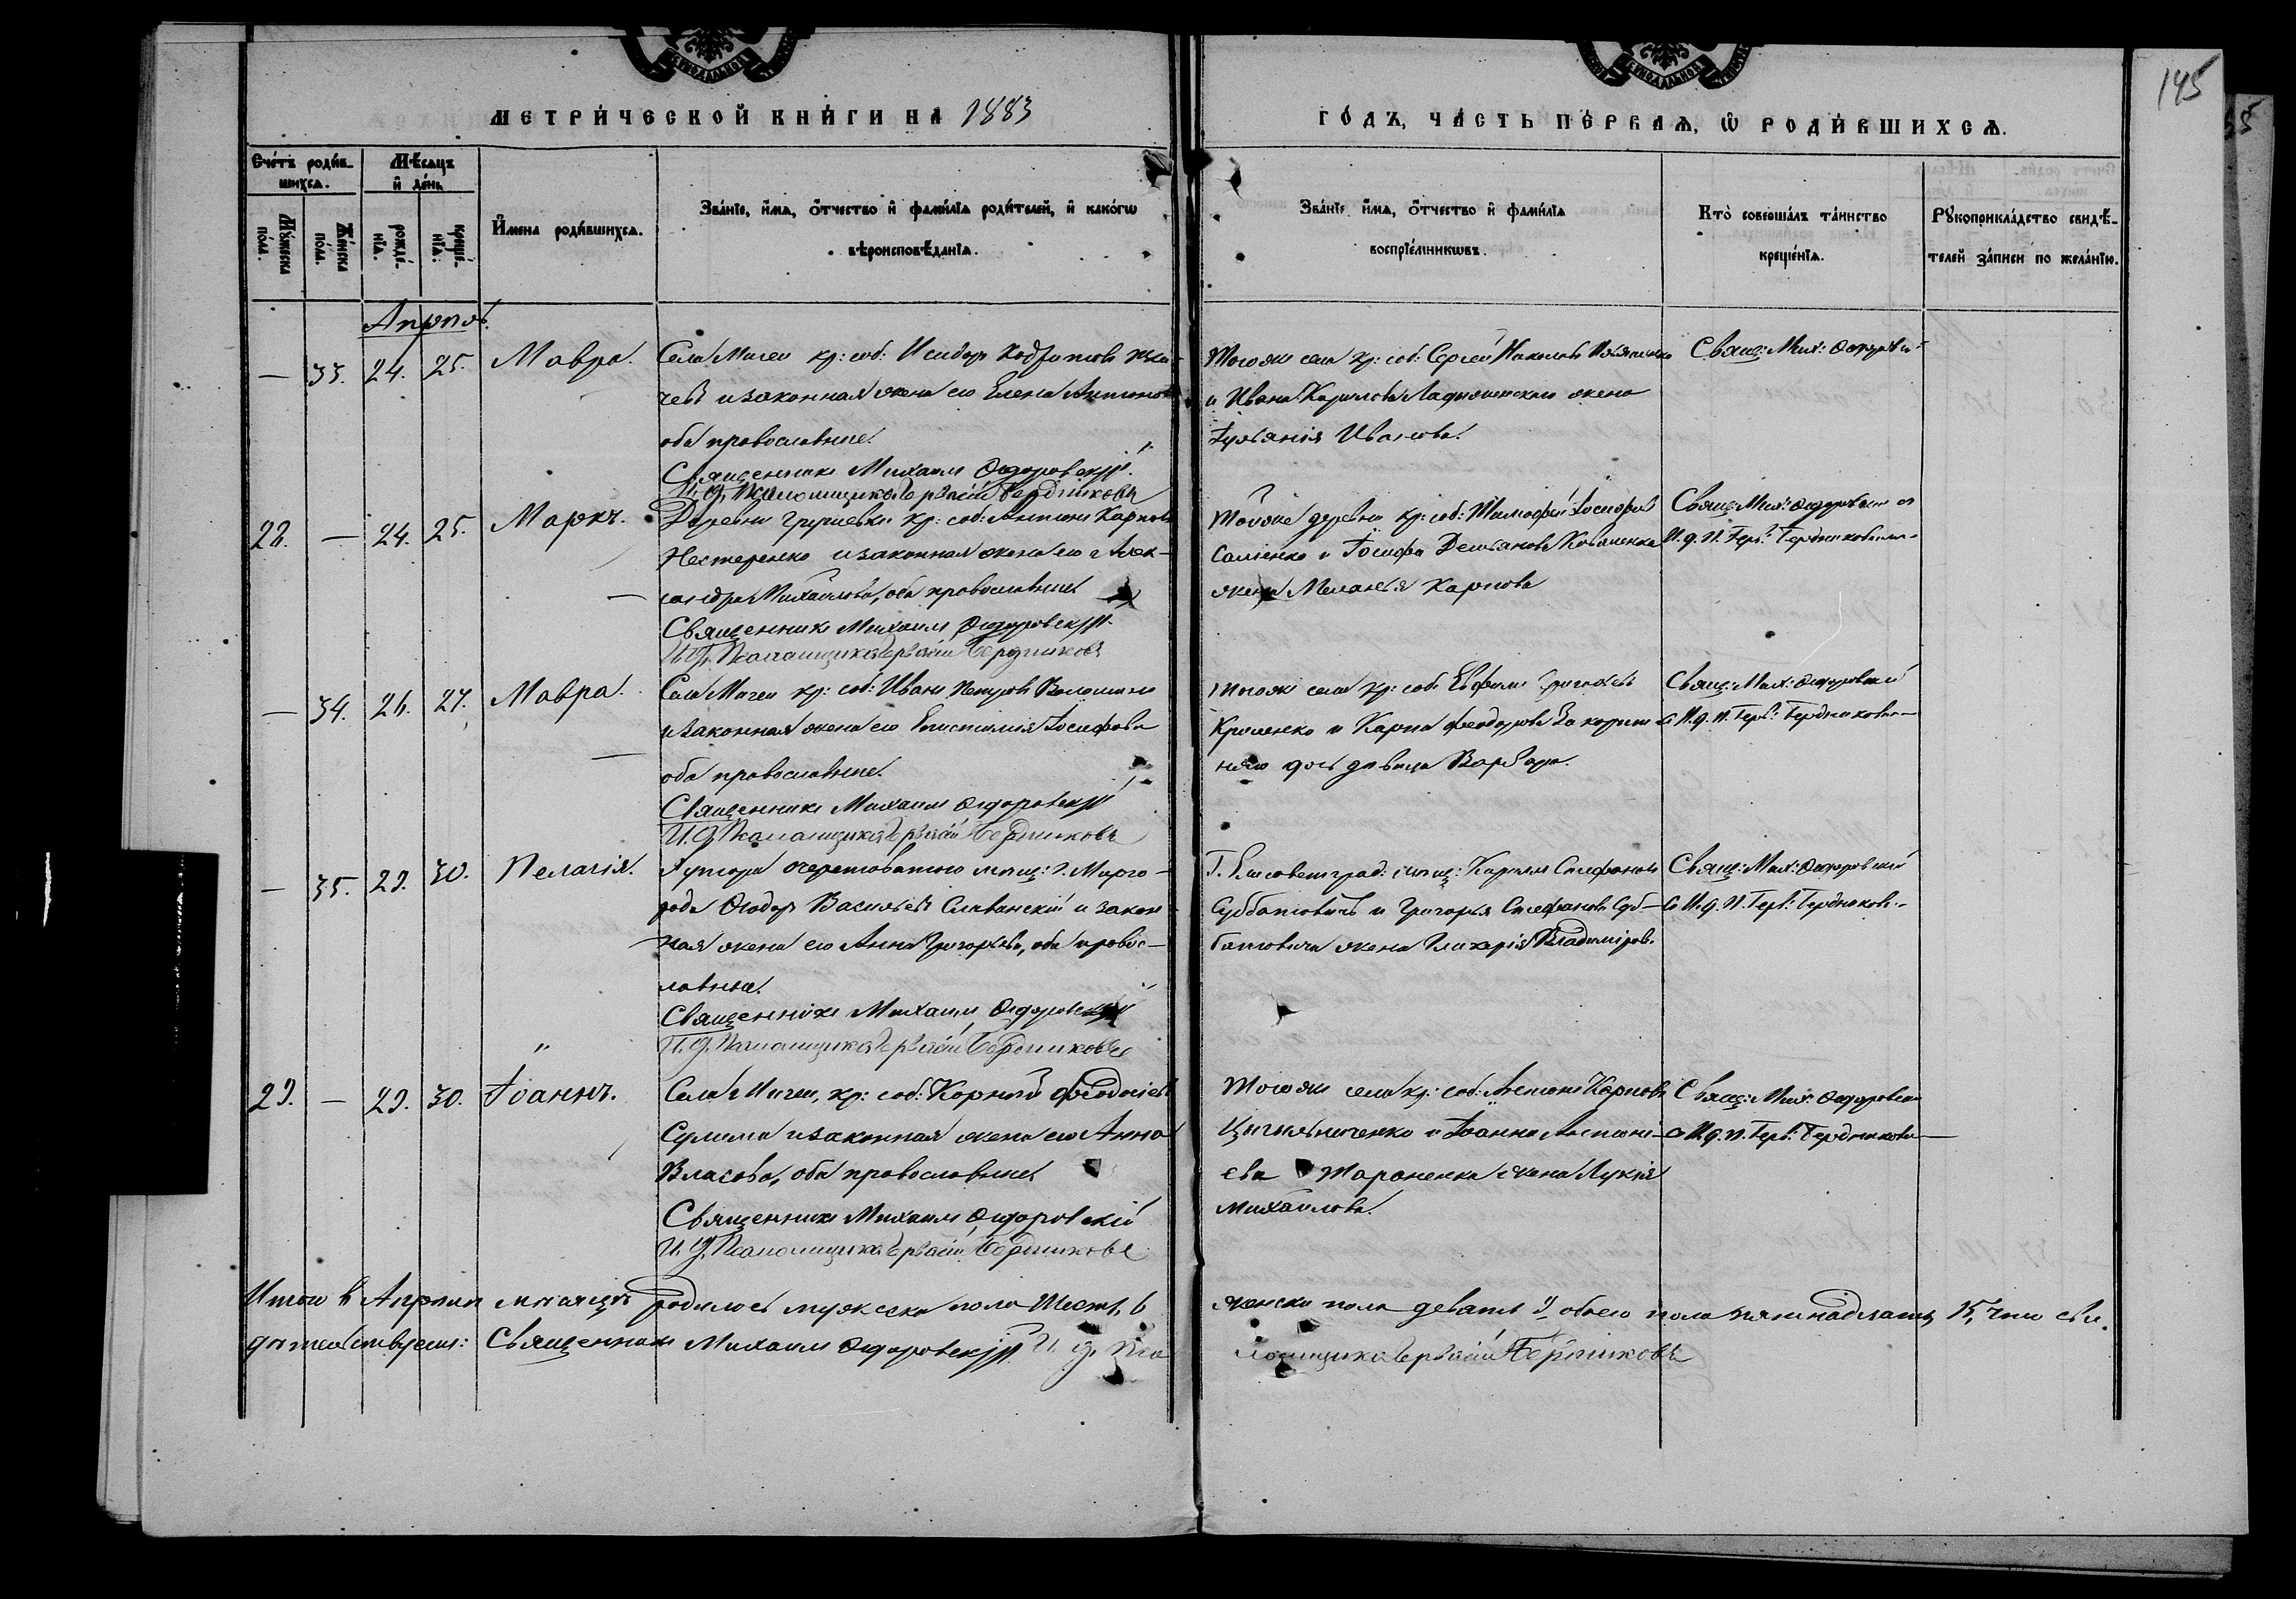 145
МЕТРИ́ЧЕСКОЙ КНИ́ГИ НА 1883
ГО́ДЪ, ЧА́СТЬ ПЕ́РВАѦ, Ѡ РОДИ́ВШИХСѦ.
Сче́тъ роди́в-
шихсѧ.
Мѣ́сѧцъ
и҆ де́нь
Му́жеска
по́ла.
Же́нска
по́ла.
рожде́-
нїѧ.
креще́-
нїѧ.
И҆́мена роди́вшихсѧ.
Зва́нїе, и҆́мѧ, ѻ҆́тчество и҆ фами́лїѧ роди́телей, и҆ како́гѡ
вѣроисповѣ́данїѧ.
Зва́нїе, и҆́мѧ, ѻ҆́тчество и҆ фами́лїѧ
воспрїе́мникѡвъ.
Кто̀ соверша́лъ та́инство
креще́нїѧ.
Рꙋкоприкла́дство свидѣ́-
телей за́писи по жела́нїю.
Апрѣль.
— 33. 24. 25. Мавра.
Села Мигеи кр: соб: Исидор
и законная жена его Елена Антонова
оба православные.
Священникъ Михаилъ Ѳедоровскій.
И. д. Псаломщика Гервасій Бердниковъ
Того же села кр: соб: Сергей
и Ивана жена
Іуліанія Иванова.
Свящ: Мих: Ѳедоровскій
22. — 24. 25. Маркъ.
Деревни кр: соб: Антонъ Карповъ
Нестеренко и законная жена его Алек-
сандра Михайлова, оба православные
Священникъ Михаилъ Ѳедоровскій.
И. д. Псаломщика Гервасій Бердниковъ
Той же деревни кр: соб: Тимофей Іосифов
и Іосифа Демьянова
жена Меланья Карпова
Свящ: Мих: Ѳедоровскій съ
И. д. П. Герв: Бердниковымъ
— 34. 26. 27. Мавра.
Села Мигеи кр: соб: Иванъ Петровъ Волошинъ
и законная жена его Епистимія Іосифова
оба православные.
Священникъ Михаилъ Ѳедоровскій
И. д. Псаломщика Гервасій Бердниковъ
Того же села кр: соб: Евфимъ
и Карпа Феодорова
дочь девица Варвара.
Свящ: Мих: Ѳедоровскій
съ И. д. П. Герв: Бердниковымъ
— 35. 29. 30. Пелагія.
Хутора мѣщ: г. Мирго-
рода Ѳеодор Васильевъ Славинскій и закон-
ная жена его Анна Григорьева, оба правос-
лавные.
Священникъ Михаилъ Ѳедоровскій
И. д. Псаломщика Гервасій Бердниковъ
Г. Елисаветград: мѣщ: Стефановъ
Субботовичъ и Григорья Стефанова Суб-
ботовича жена Гликерія Владимиров.
Свящ: Мих: Ѳедоровскій
съ И. д. П. Герв: Бердниковымъ
29. — 29. 30. Іоаннъ.
Села Мигеи, кр: соб: Корнилій Феодосіев
Сулима и законная жена его Анна
Власова, оба православные
Священникъ Михаилъ Ѳедоровскій
И. д. Псаломщика Гервасій Бердниковъ
Того же села кр: соб: Антонъ Карповъ
и Іоанна
ева Тараненка жена Лукія
Михайлова.
Свящ: Мих: Ѳедоровскій
съ И. д. П. Герв: Бердниковымъ
Итого въ Апрѣлѣ мѣсяцѣ родилось мужеска пола Шесть, 6 женска пола девять 9, обоего пола пятнадцать, 15, что сви-
дѣтельствуемъ: Священникъ Михаилъ Ѳедоровскій И. д. Пса-
ломщика Гервасій Бердниковъ